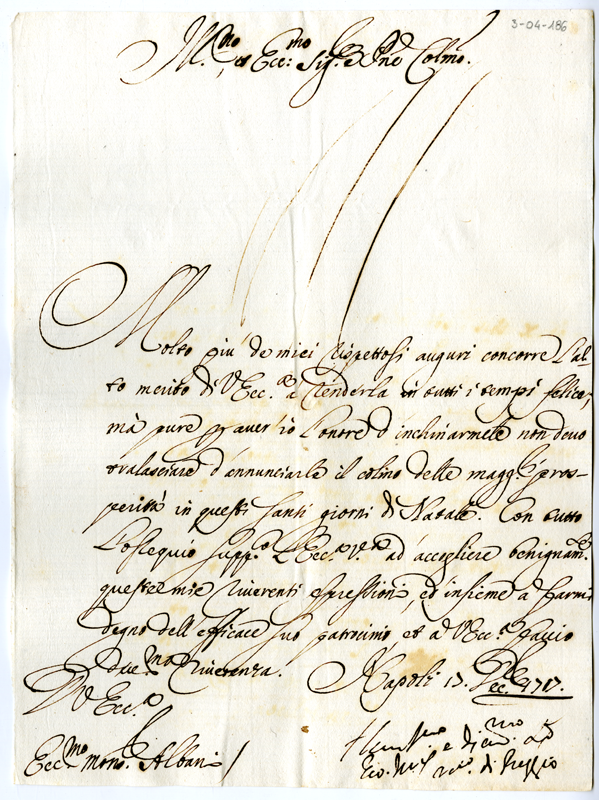 3-04-186
Ill.mo et Ecc:mo Sig.e P.ne Colmo.
Molto più de miei rispettosi auguri concorre l'al-
to merito di V Ecc.a a renderla in tutti i tempi felice,
mà pure p aver io l'onore d'inchinarmele non devo
tralasciare d'annunciarle il colmo delle magg.i pros-
perità in questi santi giorni di Natale. Con tutto
l'ossequio supp.co l'Ecc.a V.ra ad accogliere benignam.te
queste mie riverenti espressioni, ed insieme a farmi
degno dell'efficace suo patrocinio et a V Ecc.a faccio
riverenza. Napoli 13. Dec.e 1717.
D V Ecc.a
Ecc.mo Mons. Albani
e di Reggio